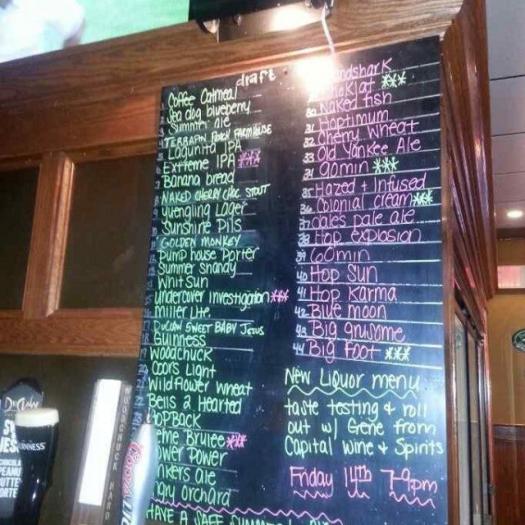 draft
1 Coffee Oatmeal
2 Sea dog blueberry
3 Summer ale
4 TERRAPIN PEACH FARMHOUSE
5 Lagunita IPA
6 Extreme IPA ***
7 Banana bread
8 NAKED CHERRY CHOC STOUT
9 Yuengling Lager
10 Sunshine Pils
11 GOLDEN MONKEY
12 Pump house Porter
13 Summer shandy
14 Whitsun
15 undercover investigation ***
16 Miller Lite
17 DUCLAW SWEET BABY JESUS
18 Guinness
19 Woodchuck
20 Coors Light
21 Wildflower wheat
22 Bells 2 Hearted
HOPBACK
Creme Brulee ***
Flower Power
Yonkers ale
Angry orchard
HAVE A SAFE SUMMER
Landshark
***
30 Naked fish
31 Hoptimum
32 Cherry Wheat
33 Old Yankee Ale
34 90min ***
35 Hazed + Infused
36 Colonial cream ***
37 Dales pale ale
38 Hop explosion
39 60min
40 Hop Sun
41 Hop Karma
42 Blue moon
43 Big gruesome
44 Big Foot ***
New Liquor menu
taste testing & roll
out w/ Gene from
Capital wine & Spirits
Friday 14th 7-9pm
GUINNESS
WOODCHUCK HARD
PEANUT
BUTTER
PORTER